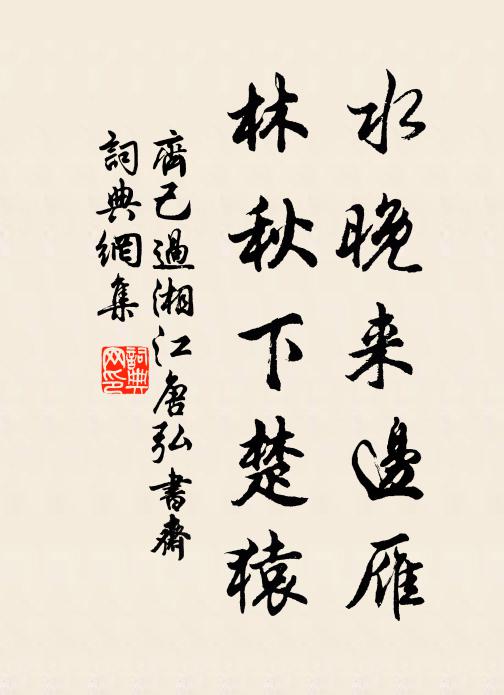 水晚来邊雁
林秋下楚猿
齊己過湘江唐弘書齋
詞典網集
詞典网印